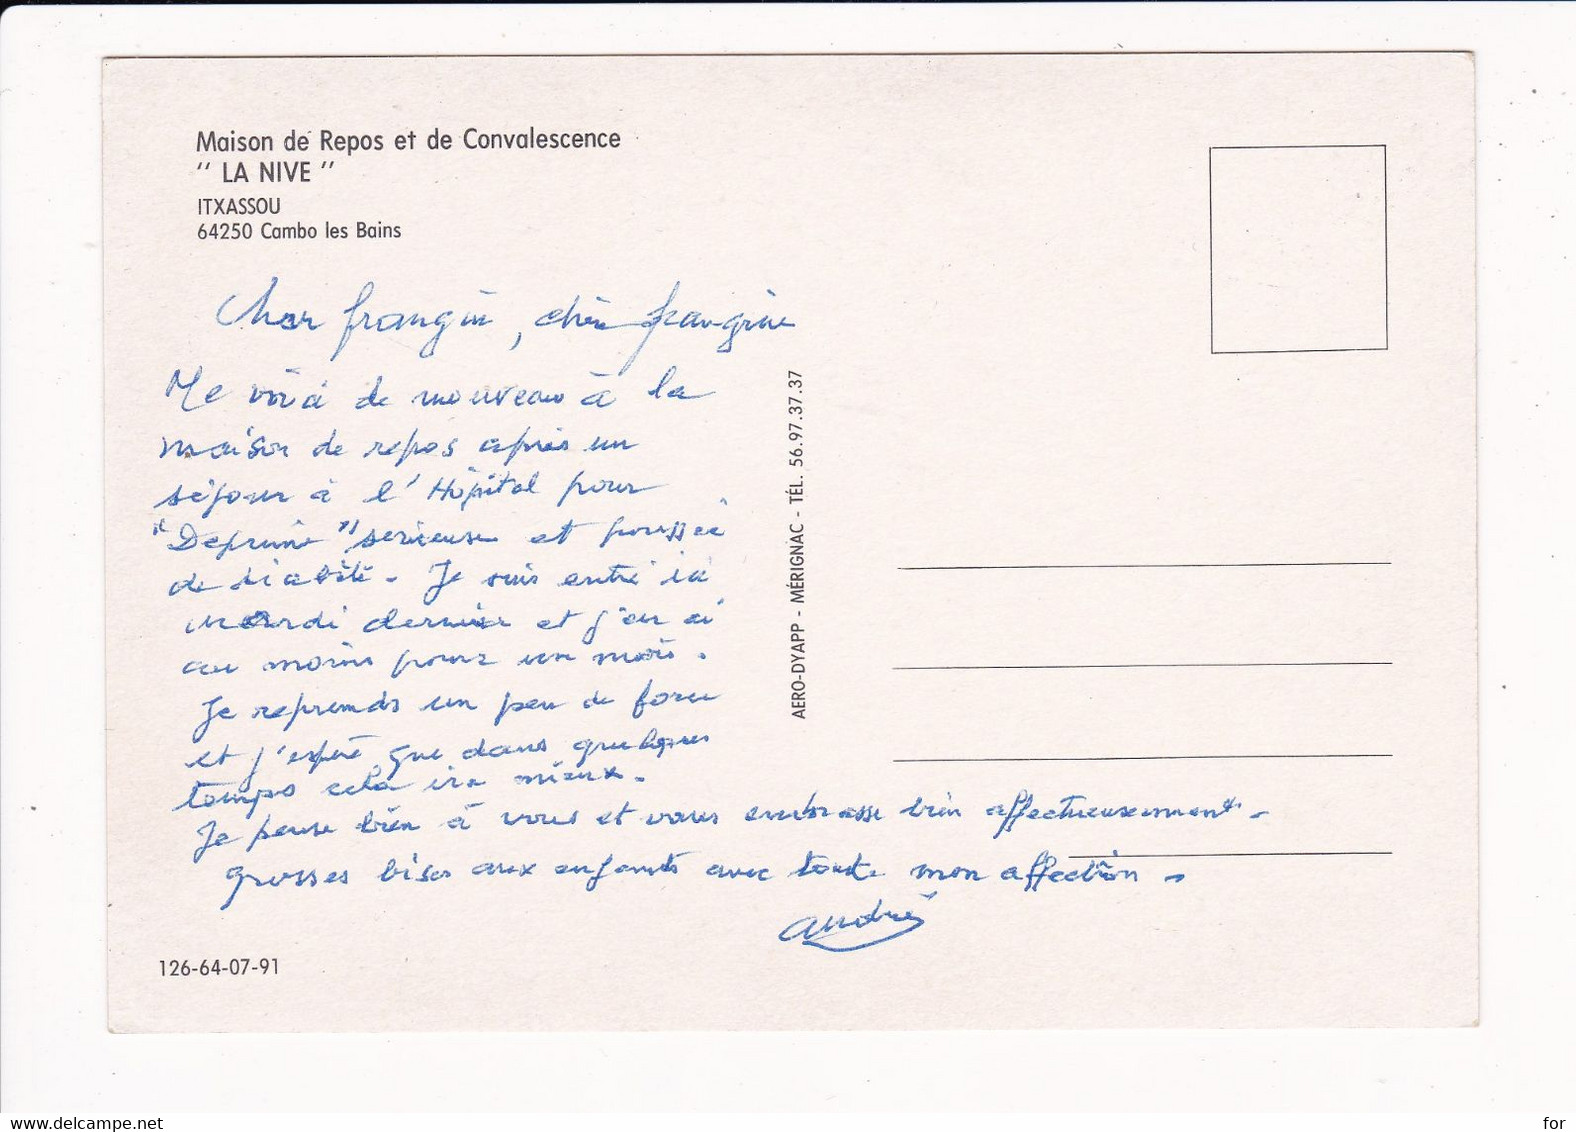 Maison de Repos et de Convalescence
" LA NIVE "
ITXASSOU
64250 Cambo les Bains
Cher frangin, chère frangine
Me voici de nouveau à la
maison de repos après un
séjour à l'Hôpital pour
"Deprime" serieuse et poussée
de diabète. Je suis entré ici
mardi dernier et j'en ai
au moins pour un mois.
Je reprends un peu de force
et j'espère que dans quelques
temps cela ira mieux.
Je pense bien à vous et vous embrasse bien affectueusement.
grosses bises aux enfants avec toute mon affection.
andré
126-64-07-91
AERO-DYAPP - MÉRIGNAC - TÉL. 56.97.37.37
for